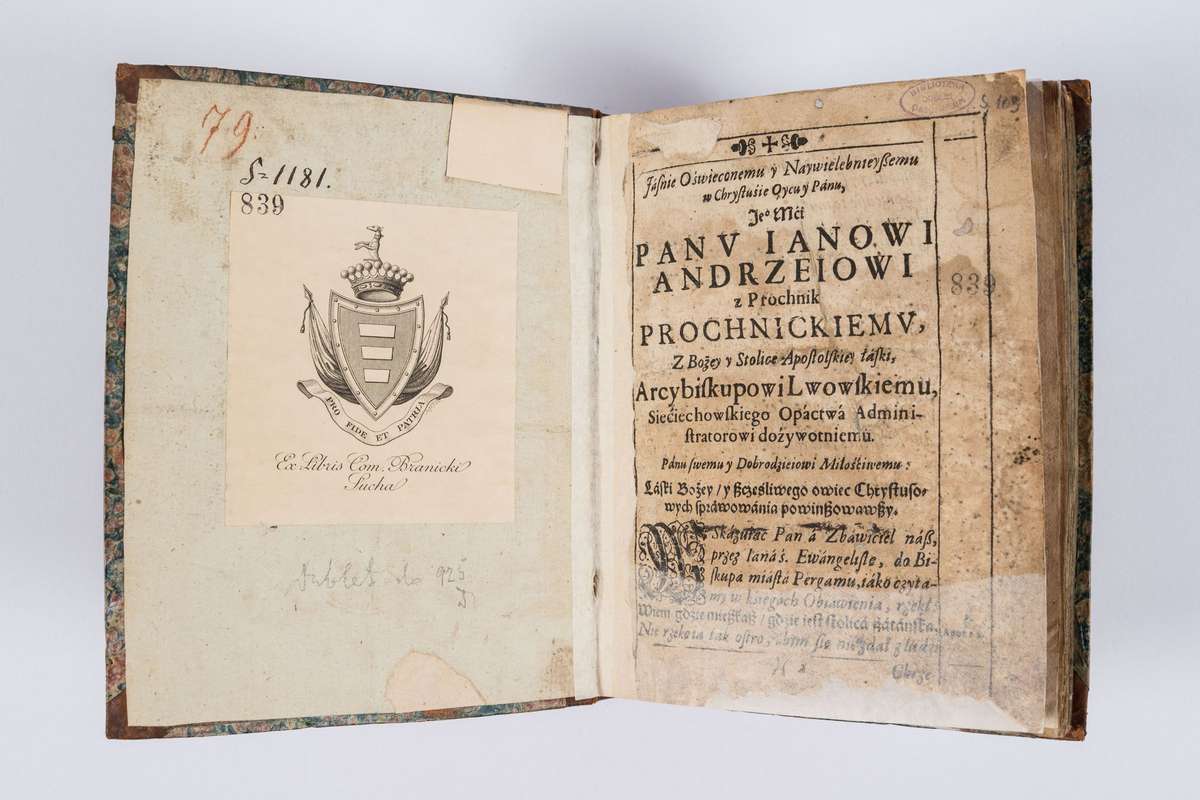 79
S-1181.
839
PRO FIDE ET PATRIA
Ex Libris Com. Branicki
Sucha
dublet do 925
BIBLIOTEKA
S. 103
Jáśnie Oświeconemu y Naywielebnieyßemu
w Chrystuśie Oycu y Pánu,
Jeº Mći
PANV IANOWI
ANDRZEIOWI
z Prochnik
PROCHNICKIEMV,
Z Bożey y Stolice Apostolskiey łáski,
Arcybiskupowi Lwowskiemu,
Sieciechowskiego Opáctwá Admini-
stratorowi dożywotniemu.
Pánu swemu y Dobrodzieiowi Miłośćiwemu:
Láski Bożey / y sczęśliwego owiec Chrystuso-
wych spráwowánia powinßowawßy.
WSkázuiąc Pan á Zbáwićiel náß,
przez Ianá ś. Ewángelistę, do Bi-
skupa miástá Pergamu, iáko czyta-
my w księgach Obiawienia, rzekł:
Wiem gdzie mießkaß / gdzie iest stolicá ßátáńska.
Nie rzekł tak ostro,
839